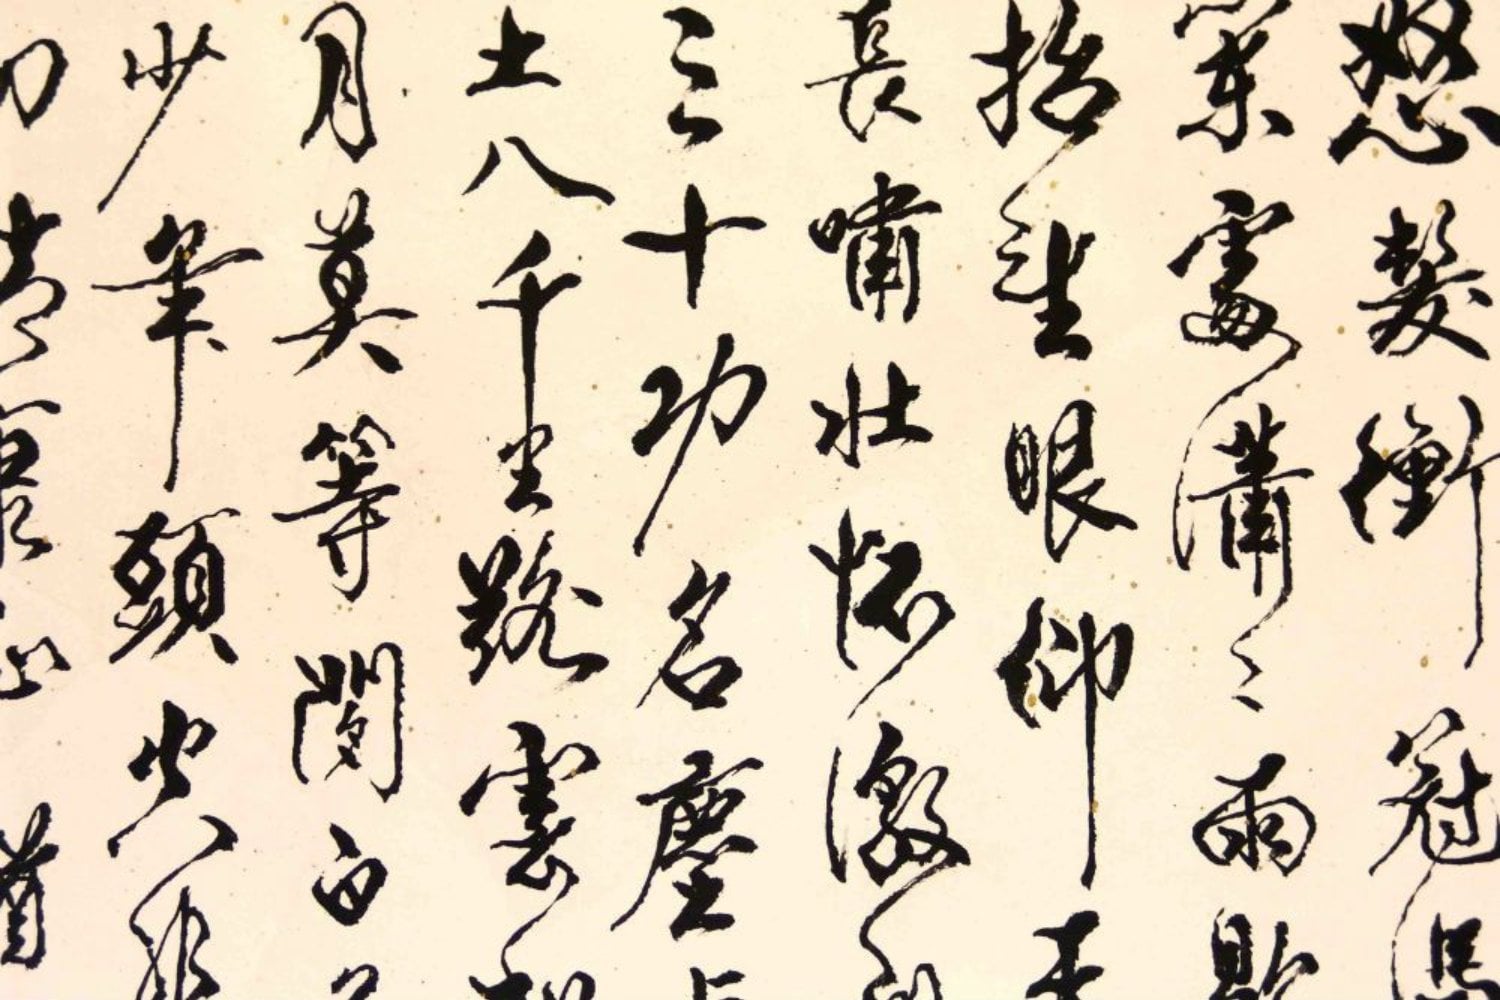 怒髮衝冠憑
闌處瀟々雨歇
抬望眼仰天
長嘯壯懷激烈
三十功名塵與
土八千里路雲和
月莫等閒白了
少年頭空悲
切靖康恥猶